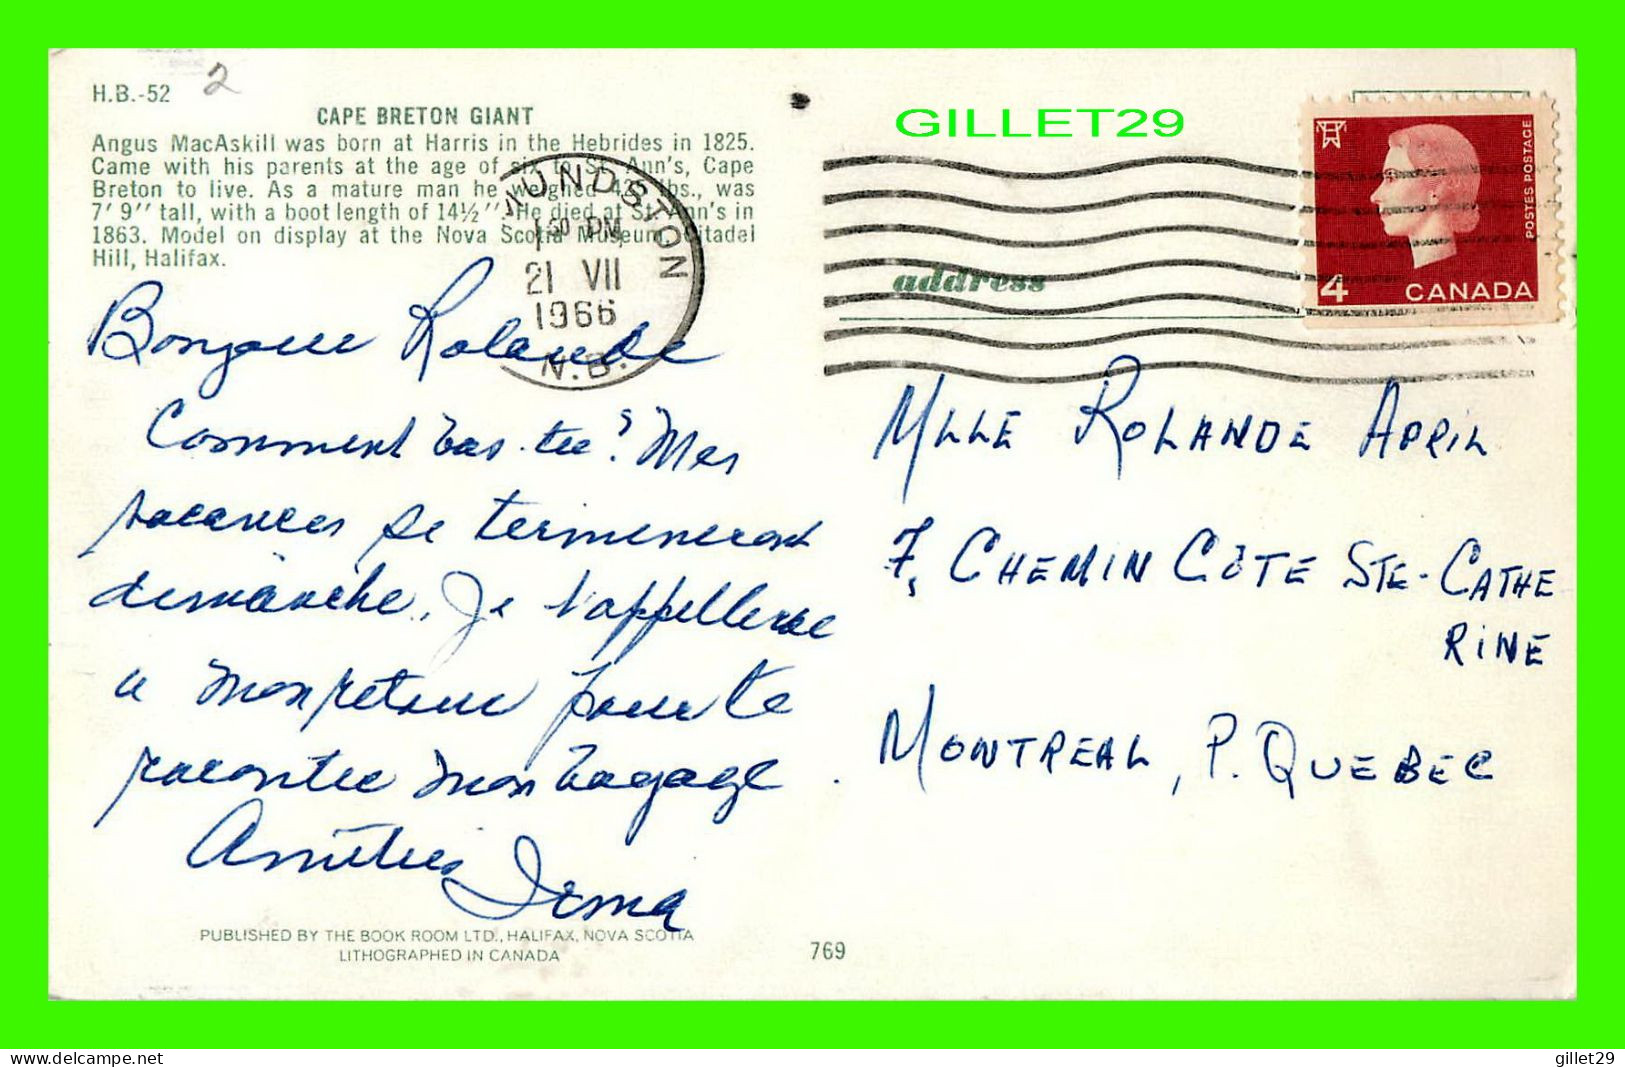 H.B.-52
2
CAPE BRETON GIANT
Angus MacAskill was born at Harris in the Hebrides in 1825.
Came with his parents at the age of six to St. Ann's, Cape
Breton to live. As a mature man he weighed 425 lbs., was
7' 9'' tall, with a boot length of 14½''. He died at St. Ann's in
1863. Model on display at the Nova Scotia Museum, Citadel
Hill, Halifax.
GILLET29
MUNDSTON
PM
21 VII
1966
N.B.
POSTES POSTAGE
4 CANADA
address
Bonjour Rolande
Comment vas-tu? Mes
vacances se termineront
dimanche. Je t'appellerai
a mon retour pour te
raconter mon voyage
Amitiés Irma
MLLE ROLANDE APRIL
7, CHEMIN CÔTE STE-CATHE
RINE
MONTREAL, P. QUEBEC
PUBLISHED BY THE BOOK ROOM LTD., HALIFAX, NOVA SCOTIA
LITHOGRAPHED IN CANADA
769
www.delcampe.net
gillet29